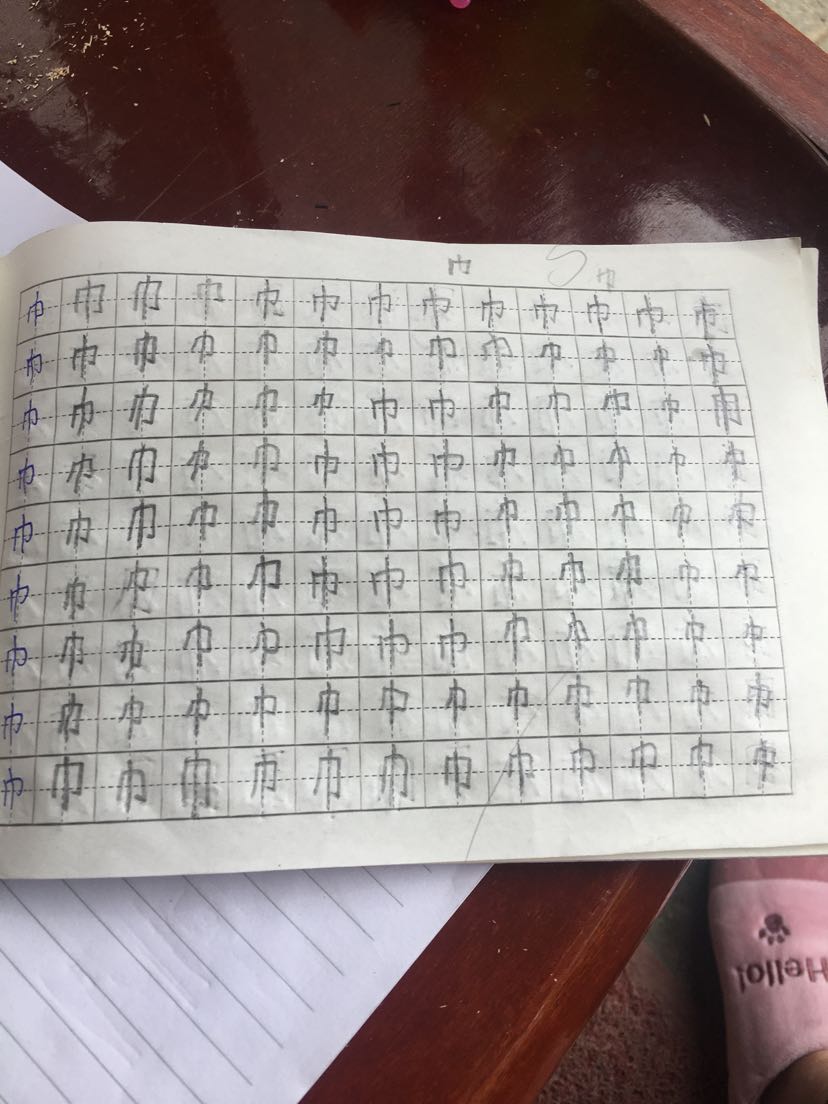 巾 巾
巾 巾 巾 巾 巾 巾 巾 巾 巾 巾 巾 巾 巾
巾 巾 巾 巾 巾 巾 巾 巾 巾 巾 巾 巾 巾
巾 巾 巾 巾 巾 巾 巾 巾 巾 巾 巾 巾 巾
巾 巾 巾 巾 巾 巾 巾 巾 巾 巾 巾 巾 巾
巾 巾 巾 巾 巾 巾 巾 巾 巾 巾 巾 巾 巾
巾 巾 巾 巾 巾 巾 巾 巾 巾 巾 巾 巾 巾
巾 巾 巾 巾 巾 巾 巾 巾 巾 巾 巾 巾 巾
巾 巾 巾 巾 巾 巾 巾 巾 巾 巾 巾 巾 巾
巾 巾 巾 巾 巾 巾 巾 巾 巾 巾 巾 巾 巾
Hello!